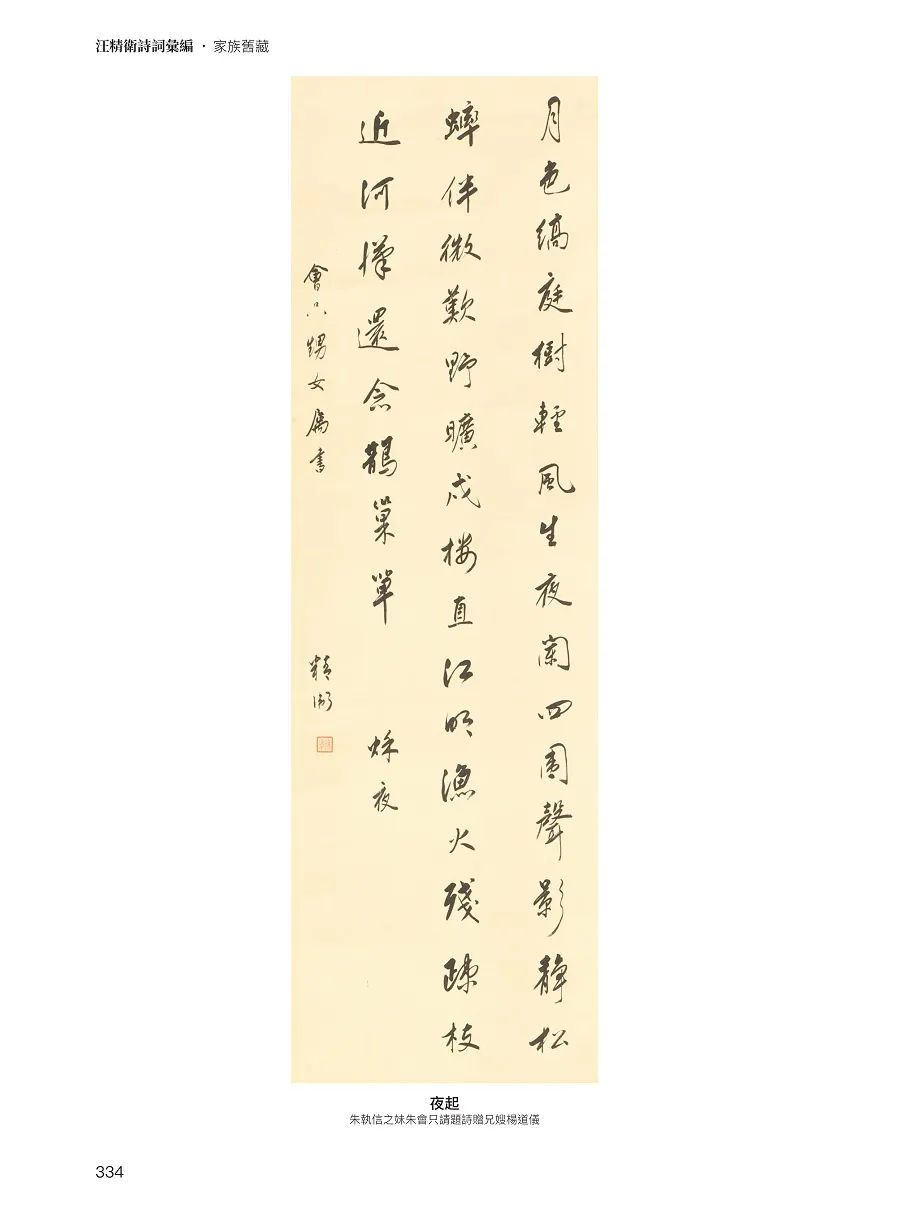 汪精衛詩詞彙編 · 家族舊藏
月色縞庭樹輕風生夜闌四圍聲影靜松
蟀伴微歎野曠戍樓直江明漁火殘疎枝
近河漢還念鵲巢單 秌夜
會只甥女屬書 精衛
夜起
朱執信之妹朱會只請題詩贈兄嫂楊道儀
334